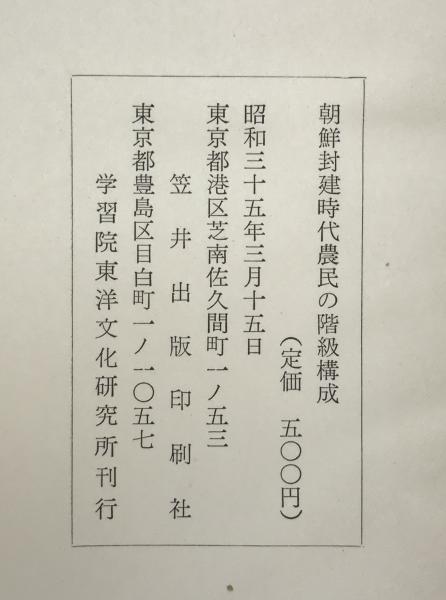 朝鮮封建時代農民の階級構成
(定価 五〇〇円)
昭和三十五年三月十五日
東京都港区芝南佐久間町一ノ五三
笠井出版印刷社
東京都豊島区目白町一ノ一〇五七
学習院東洋文化研究所刊行